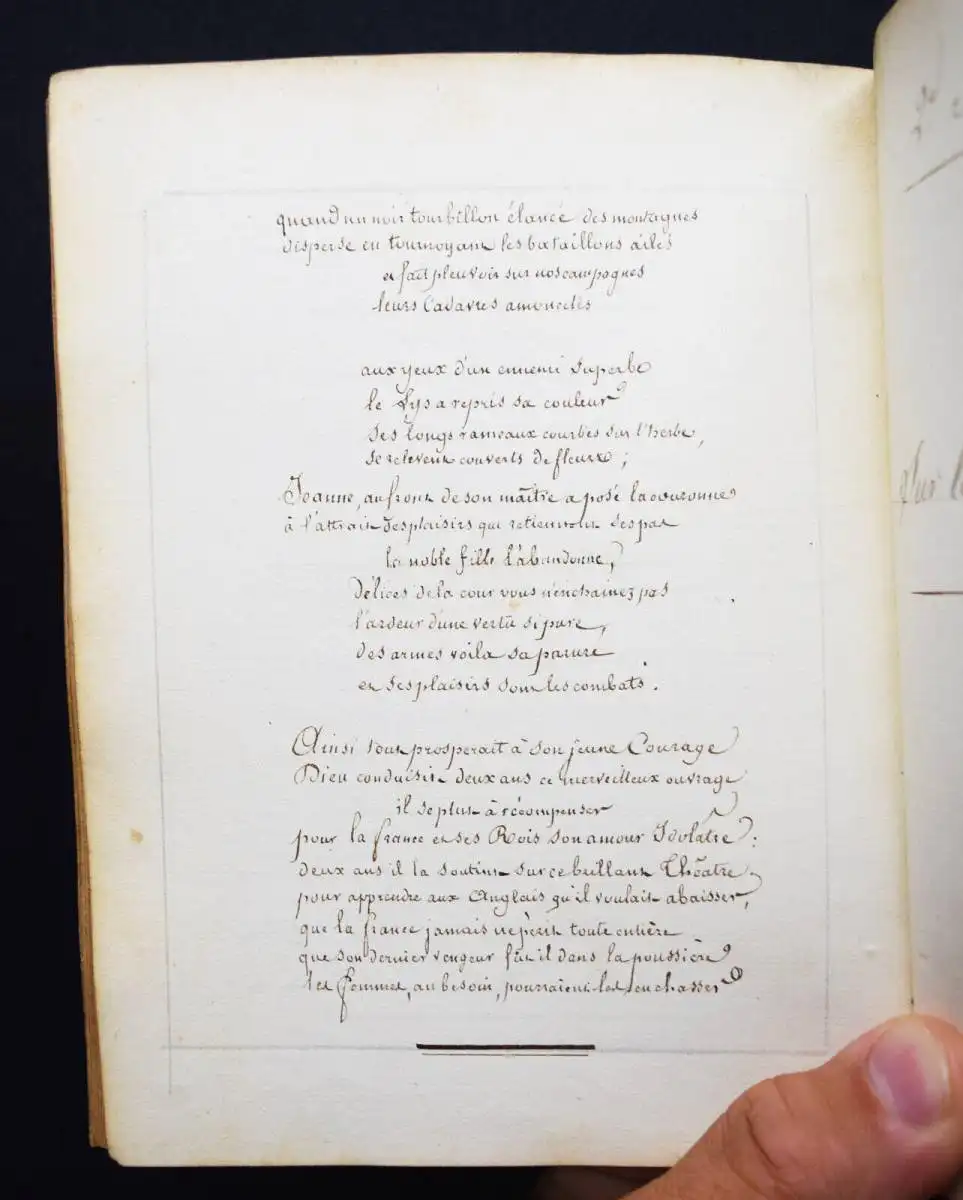 quand un noir tourbillon élancé des montagnes
disperse en tournoyant les bataillons ailés
et fait pleuvoir sur nos campagnes
leurs Cadavres amoncelés
aux yeux d'un ennemi superbe
le Lys a repris sa couleur
ses longs rameaux courbés sur l'herbe,
se relevent couverts de fleurs;
Jeanne, au front de son maître a posé la couronne
à l'attrait des plaisirs qui retiennent ses pas
la noble fille l'abandonne,
délices de la cour vous n'enchainez pas
l'ardeur d'une vertu si pure,
des armes voila sa parure
et ses plaisirs sont les combats.
Ainsi tout prosperait à son jeune Courage
Dieu conduisit deux ans ce merveilleux ouvrage
il se plut à récompenser
pour la france et ses Rois son amour Idolâtre:
deux ans il la soutint sur ce brillant Théâtre,
pour apprendre aux Anglais qu'il voulait abaisser,
que la france jamais ne périt toute entière
que son dernier vengeur fût il dans la poussière
les femmes, au besoin, pourraient les en chasser